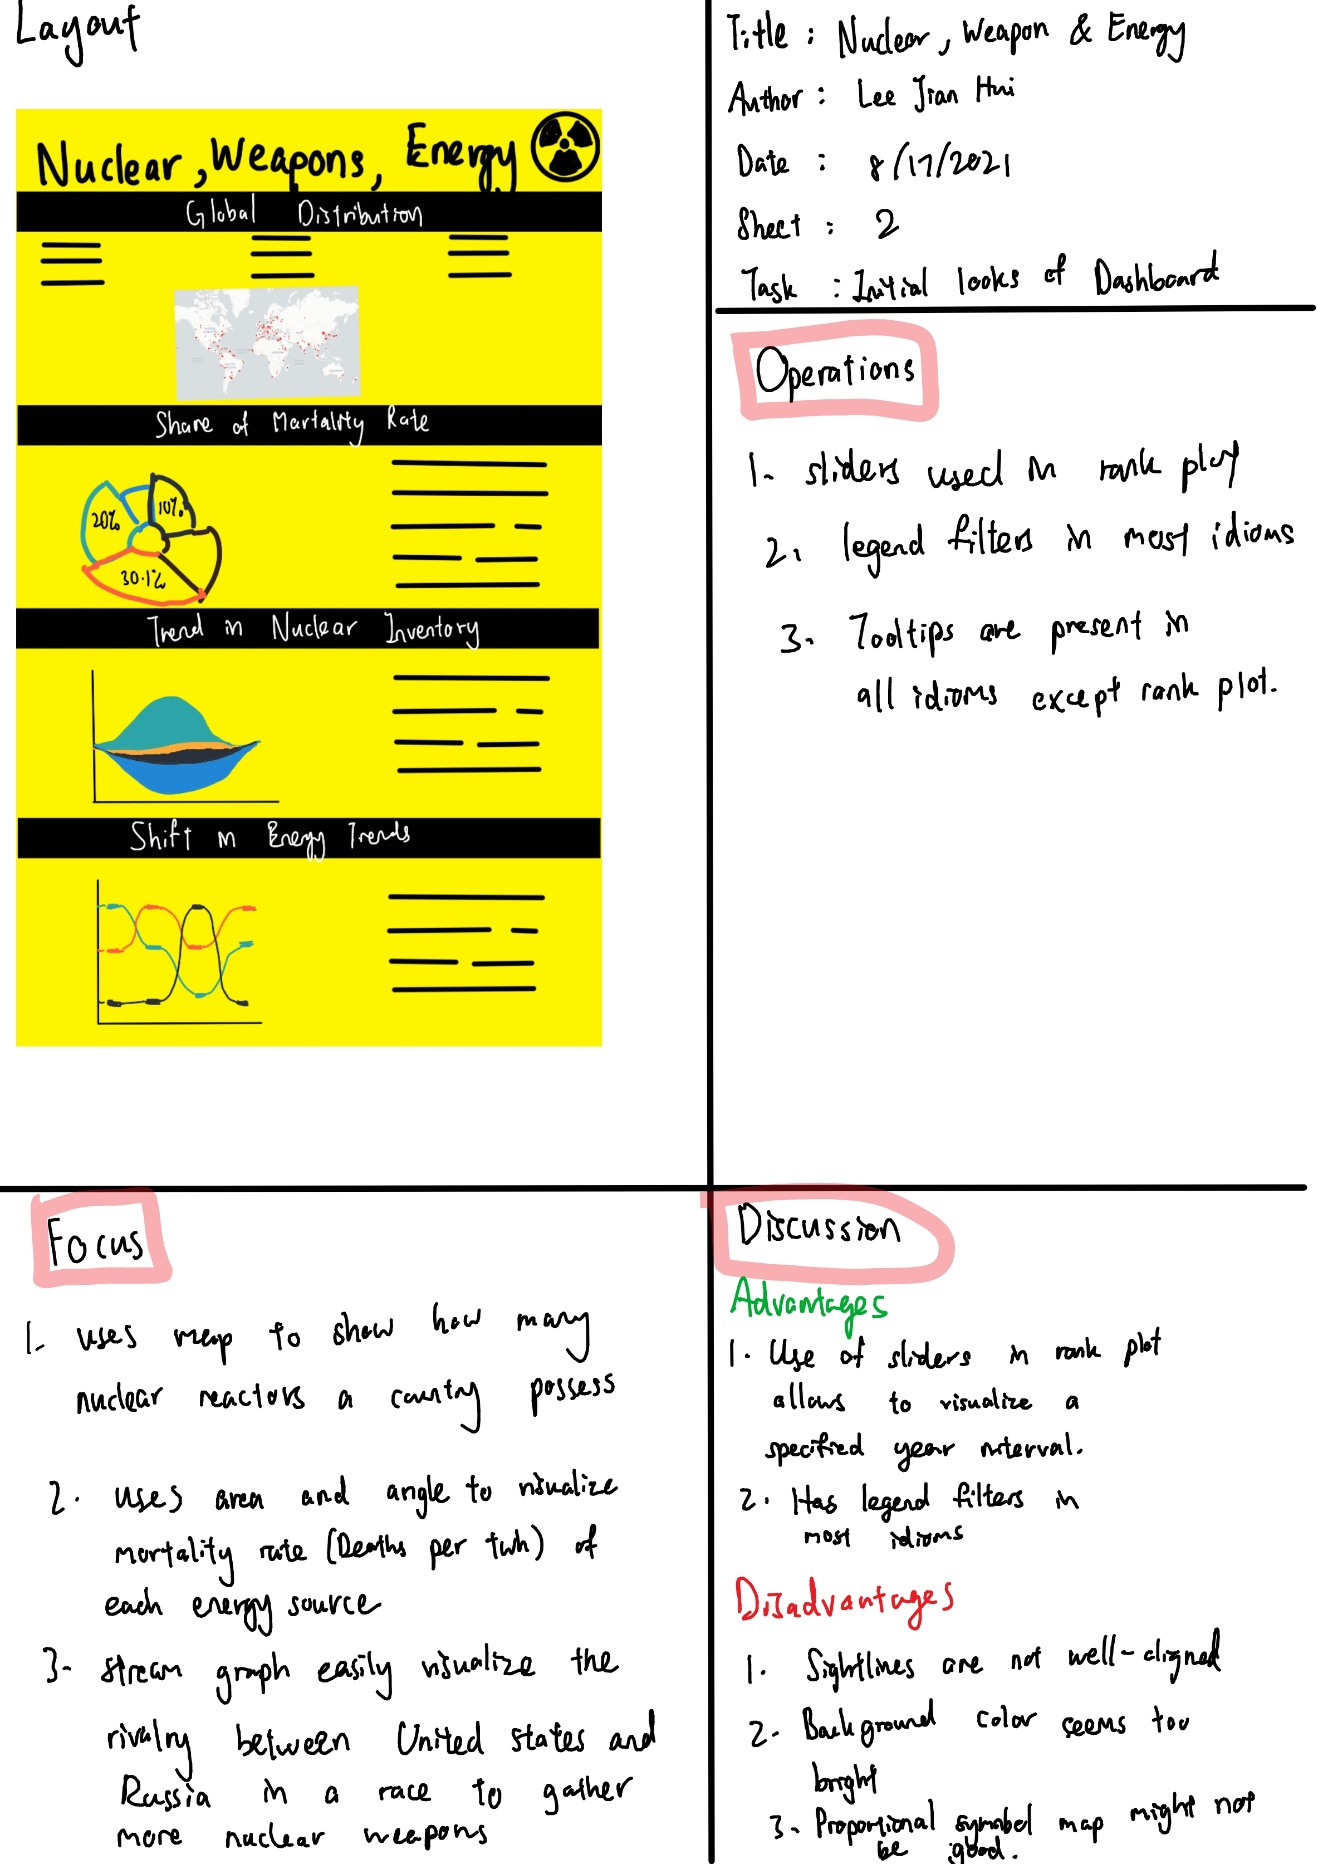 Layout
Nuclear, Weapons, Energy
Global Distribution
Share of Martality Rate
20%
10%
30.1%
Trend in Nuclear Inventory
Shift in Energy Trends
Title : Nuclear, Weapon & Energy
Author : Lee Jian Hui
Date : 8/17/2021
Sheet : 2
Task : Initial looks of Dashboard
Operations
1. sliders used in rank plot
2. legend filters in most idioms
3. Tooltips are present in
all idioms except rank plot.
Focus
1. uses map to show how many
nuclear reactors a country possess
2. uses area and angle to visualize
mortality rate (Deaths per twh) of
each energy source
3. stream graph easily visualize the
rivalry between United states and
Russia in a race to gather
more nuclear weapons
Discussion
Advantages
1. Use of sliders in rank plot
allows to visualize a
specified year interval.
2. Has legend filters in
most idioms
Disadvantages
1. Sightlines are not well-aligned
2. Background color seems too
bright
3. Proportional symbol map might not
be good.